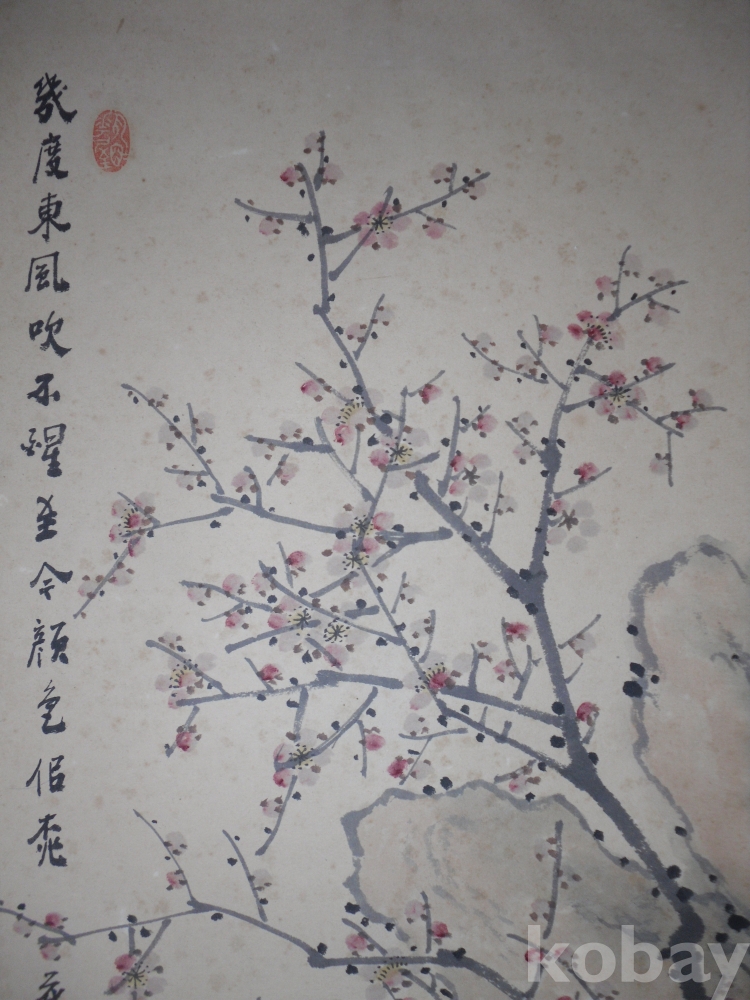 幾度東風吹不醒至今顔色似桃
kobay